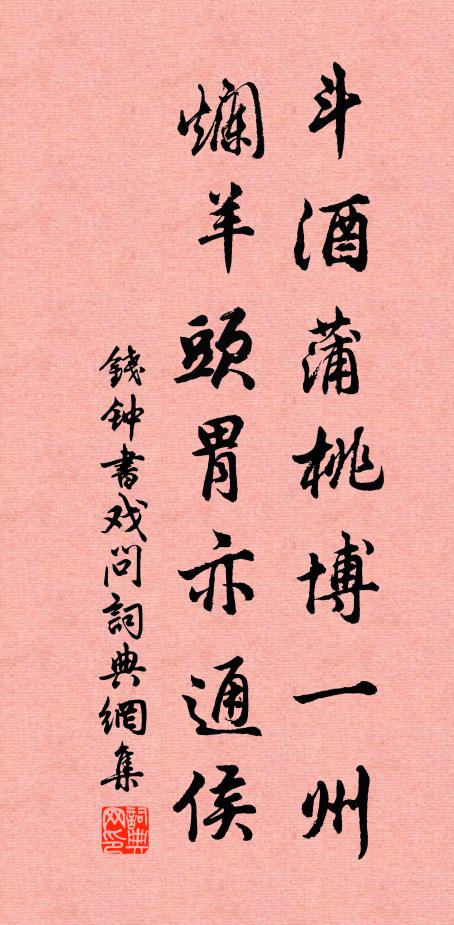 斗酒蒲桃博一州
爛羊頭胃亦通侯
錢钟書戏问詞典網集
詞典网印